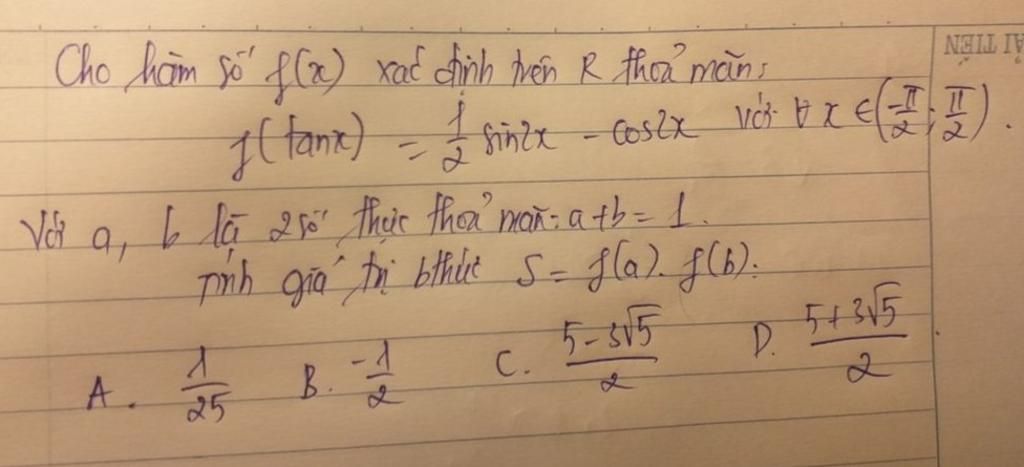 Cho hàm số f(x) xác định trên R thoả mãn:
f(tanx) = 1/2 sin2x - cos2x với ∀ x ∈ (-π/2; π/2).
Với a, b là 2 số thực thoả mãn: a+b = 1.
Tính giá trị bthức S = f(a). f(b):
A. 1/25 B. -1/2 C. (5-3√5)/2 D. (5+3√5)/2.